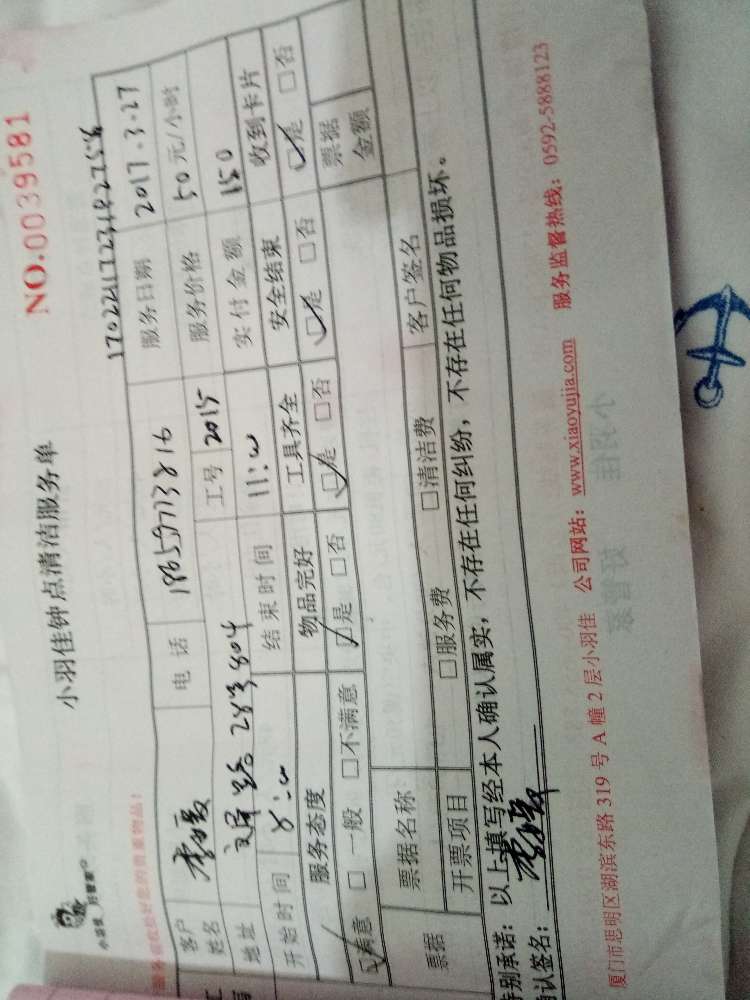 小羽佳钟点清洁服务单
NO.0039581
小羽佳 好管家
服务前请收好您的贵重物品!
客户姓名 电话 18659713816 服务日期 2017.3.27
地址 28号804 工号 2015 服务价格 50元/小时
开始时间 8:00 结束时间 11:00 实付金额 150
服务态度 物品完好 工具齐全 安全结束 收到卡片
☑满意 □一般 □不满意 ☑是 □否 ☑是 □否 ☑是 □否 ☑是 □否
票据 票据名称 客户签名 票据金额
开票项目 □服务费 □清洁费
特别承诺:以上填写经本人确认属实,不存在任何纠纷,不存在任何物品损坏。
确认签名:
厦门市思明区湖滨东路 319 号 A 幢 2 层小羽佳 公司网站:www.xiaoyujia.com 服务监督热线:0592-5888123